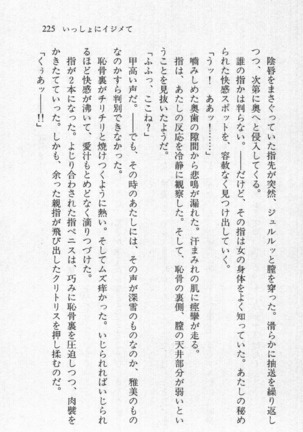 225 いっしょにイジメて
陰唇をまさぐっていた指先が突然、ジュルルッと膣を穿った。滑らかに抽送を繰り返し
つつ、次第に奥へと侵入してくる。
誰の指かは判らない。――だけど、その指は女の身体をよく知っていた。あたしの秘め
られた快感スポットを、容赦なく見つけ出していく。
「うッ! ああッ……!」
噛みしめた奥歯の隙間から悲鳴が漏れた。汗まみれの肌に痙攣が走る。
指は、あたしの反応を冷静に観察した。そして、恥骨の裏側、膣の天井部分が弱いとい
うことを見抜いたようだ。
「ふふっ、ここね?」
甲高い声だ。――でも、その時のあたしには、その声が深雪のものなのか、雅美のもの
なのかすら判別できなかった。
恥骨裏がチリチリと焼けつくように熱い。そしてムズ痒かった。いじられればいじられ
るほど快感が沸いて、愛汁もとめどなく滴りつづけた。
指が2本になった。よじり合わされた指ペニスは、巧みに恥骨裏を圧迫しつつ、肉襞を
かきたてていった。しかも、余った親指が飛び出したクリトリスを押し揉むのだ。
「くぅあッ――!!」